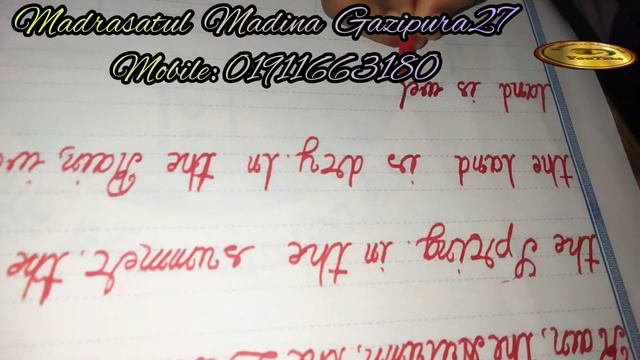 Madrasatul Madina Gazipura27
Mobile: 01911663180
YouTube
Rain, the Autumn, the
the Spring. in the summer. the
the land is dry. In the Rain,
land is wet